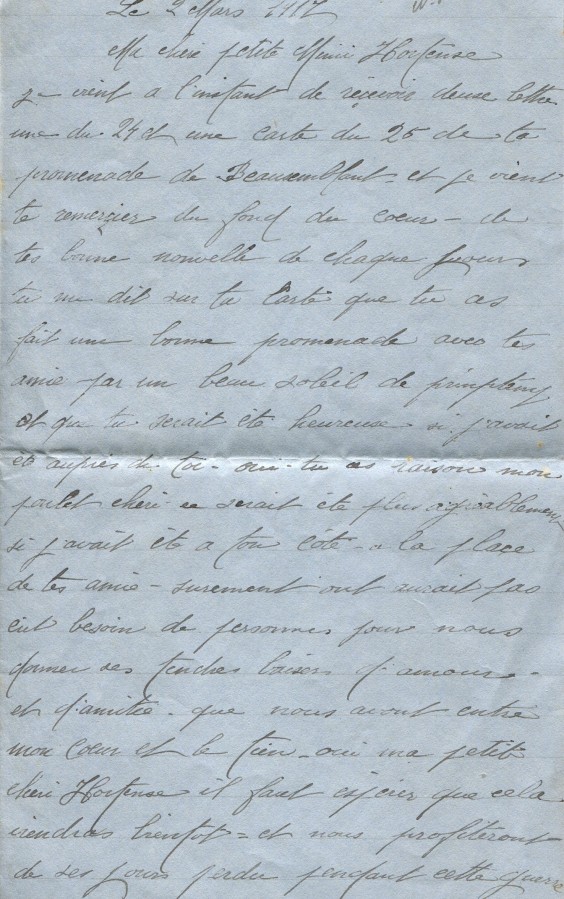 Le 2 Mars 1917
Ma chère petite Mimi Hortense
je vient a l'instant de reçevoir deuse lettre
une du 24 et une carte du 25 de ta
promenade de et je vient
te remerçier du fond du coeur - de
tes bonne nouvelle de chaque jours
tu me dit sur ta carte que tu as
fait une bonne promenade avec tes
amie par un beau soleil de printemp
et que tu serait été heureuse si j'avait
été auprès de toi - oui - tu as raison mon
poulet chéri se serait été plus agréablement
si j'avait été a ton côté - a la place
de tes amie - surement ont aurait pas
eut besoin de personnes pour nous
donner ses tendres baisers d'amour -
et d'amitié - que nous avont entre
mon coeur et le tien - oui ma petite
chéri Hortense il faut espérer que cela
viendras bientot - et nous profiteront
de ses jours perdu pendant cette guerre